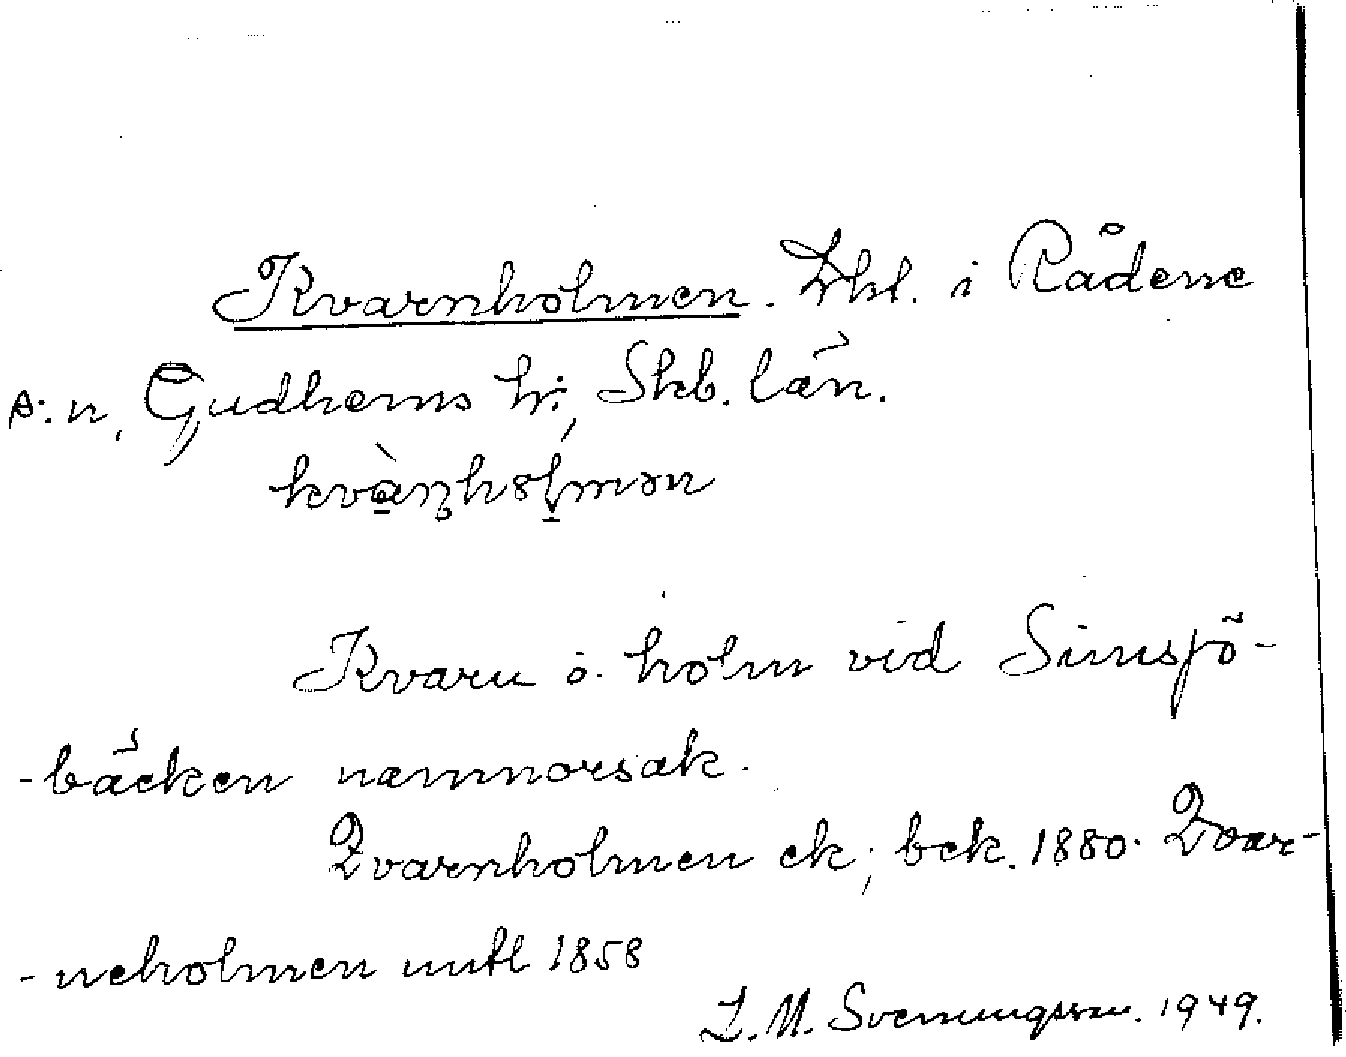 Kvarnholmen. Lhl. i Rådene
s:n, Gudhems hd, Skb. län.
kvànholmən
Kvarn o. holm vid Simsjö-
-bäcken namnorsak.
Qvarnholmen ek; bek. 1880. Qvar-
-neholmen mtl 1858
L. M. Svenungsson. 1949.